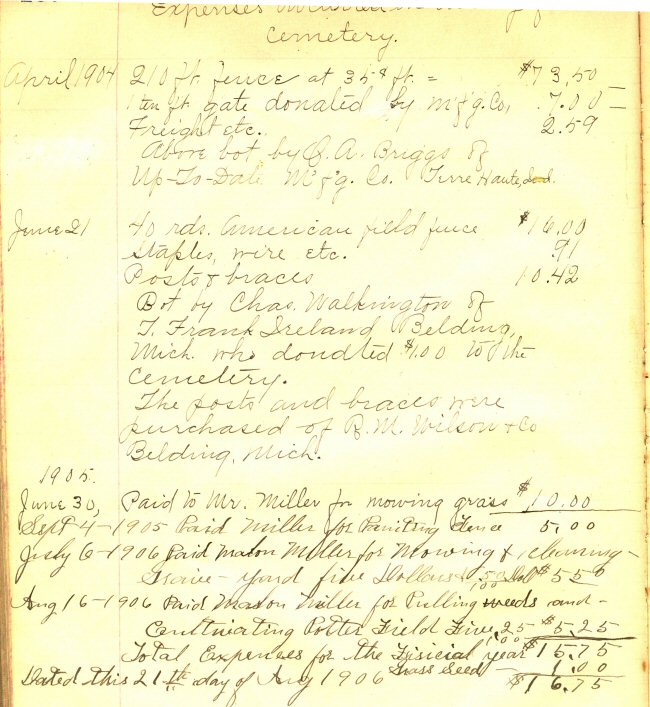 Expenses incurred in
Cemetery.
April 1904 210 ft. fence at 35¢ ft. = $73.50
1 ten ft. gate donated by M'f'g. Co, 7.00
Freight etc. 2.59
Above bot by A. Briggs of
Up-To-Date M'f'g. Co. Terre Haute, Ind.
June 21 40 rds. American field fence $16.00
Staples, wire etc. 91
Posts & braces 10.42
Bot by Chas. Walkington of
T. Frank Ireland Belding,
Mich. who donated $1.00 to the
Cemetery.
The posts and braces were
purchased of B.M. Wilson & Co
Belding, Mich.
1905.
June 30, Paid to Mr. Miller for mowing grass $10.00
Sept 4-1905 Paid Miller for Painting Fence 5.00
July 6-1906 Paid Mason Miller for Mowing & cleaning -
Grave-yard five Dollars & 50/100 Dol $5.50
Aug 16-1906 Paid Mason Miller for Pulling weeds and -
Cultivating Potter Field Five 25/100 $5.25
Total Expenses for the Fisicial year $15.75
Grass Seed - 1.00
Dated this 21st day of Aug 1906 $16.75